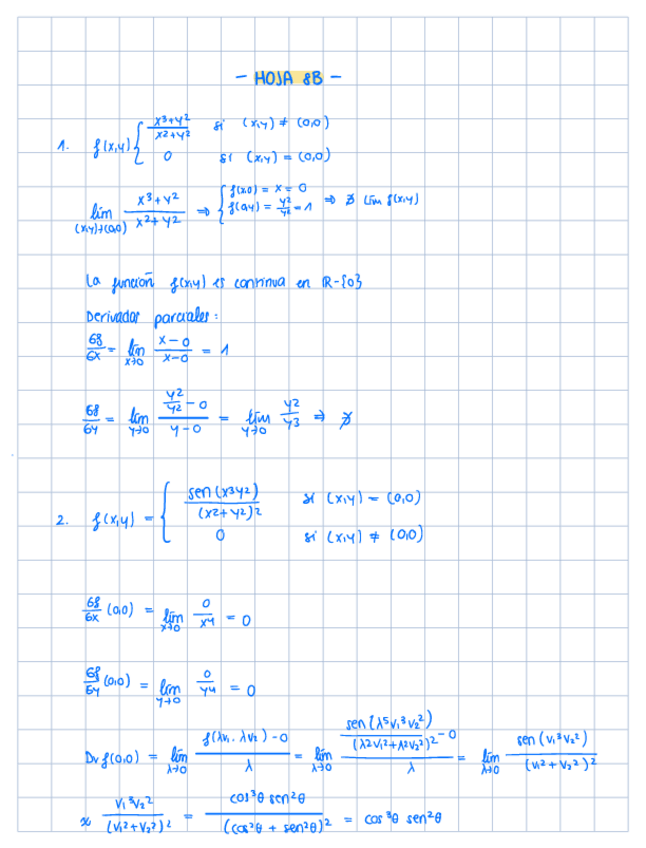 - HOJA 8B -
1. f(x,y) { x³+y² / x²+y² si (x,y) ≠ (0,0)
0 si (x,y) = (0,0)
lím (x,y)→(0,0) x³+y² / x²+y² ⇒ { f(x,0) = x = 0
f(0,y) = y²/y² = 1 ⇒ ∄ lím f(x,y)
La función f(x,y) es continua en R-{0}
Derivadas parciales:
δf/δx = lím x→0 x-0 / x-0 = 1
δf/δy = lím y→0 (y²/y² - 0) / y-0 = lím y→0 y²/y³ ⇒ ∄
2. f(x,y) = { sen(x³y²) / (x²+y²)² si (x,y) = (0,0)
0 si (x,y) ≠ (0,0)
δf/δx (0,0) = lím x→0 0/x⁴ = 0
δf/δy (0,0) = lím y→0 0/y⁴ = 0
Dv f(0,0) = lím λ→0 f(λv₁, λv₂) - 0 / λ = lím λ→0 (sen(λ⁵v₁³v₂²) / (λ²v₁²+λ²v₂²)² - 0) / λ = lím λ→0 sen(v₁³v₂²) / (v₁²+v₂²)²
≈ v₁³v₂² / (v₁²+v₂²)² = cos³θ sen²θ / (cos²θ + sen²θ)² = cos³θ sen²θ